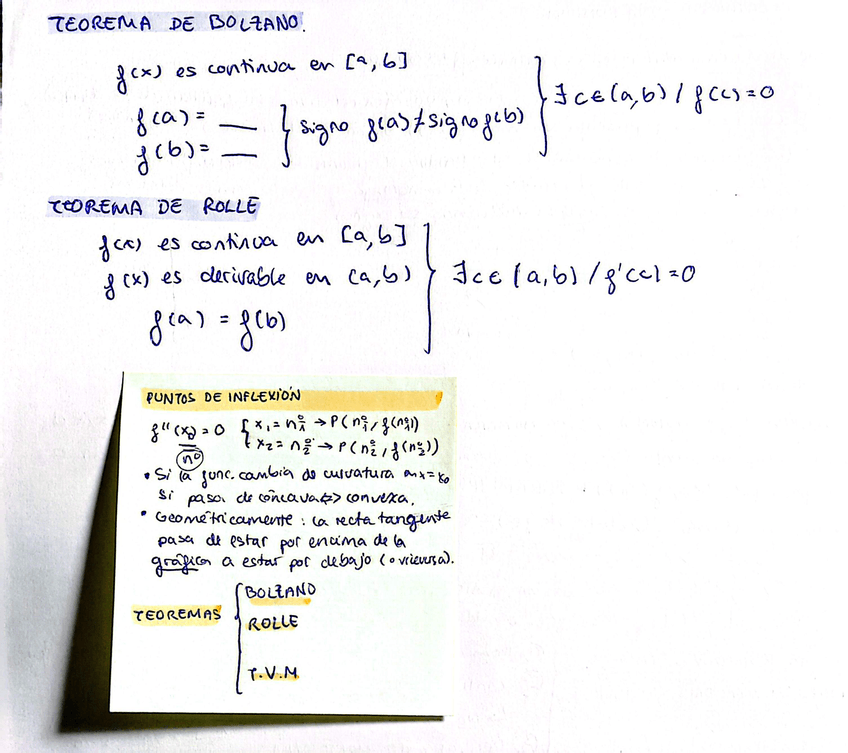 TEOREMA DE BOLZANO.
f(x) es continua en [a,b]
f(a) = __
f(b) = __
} signo f(a) ≠ signo f(b)
} ∃ c ∈ (a,b) / f(c) = 0
TEOREMA DE ROLLE
f(x) es continua en [a,b]
f(x) es derivable en (a,b)
f(a) = f(b)
} ∃ c ∈ (a,b) / f'(c) = 0
PUNTOS DE INFLEXIÓN
f''(x₀) = 0 { x₁ = nº1 → P(nº1, f(nº1))
nº x₂ = nº2 → P(nº2, f(nº2))
• Si la func. cambia de curvatura en x = x₀
si pasa de cóncava ⇔ convexa.
• Geométricamente: la recta tangente
pasa de estar por encima de la
gráfica a estar por debajo (o viceversa).
TEOREMAS {
BOLZANO
ROLLE
T.V.M